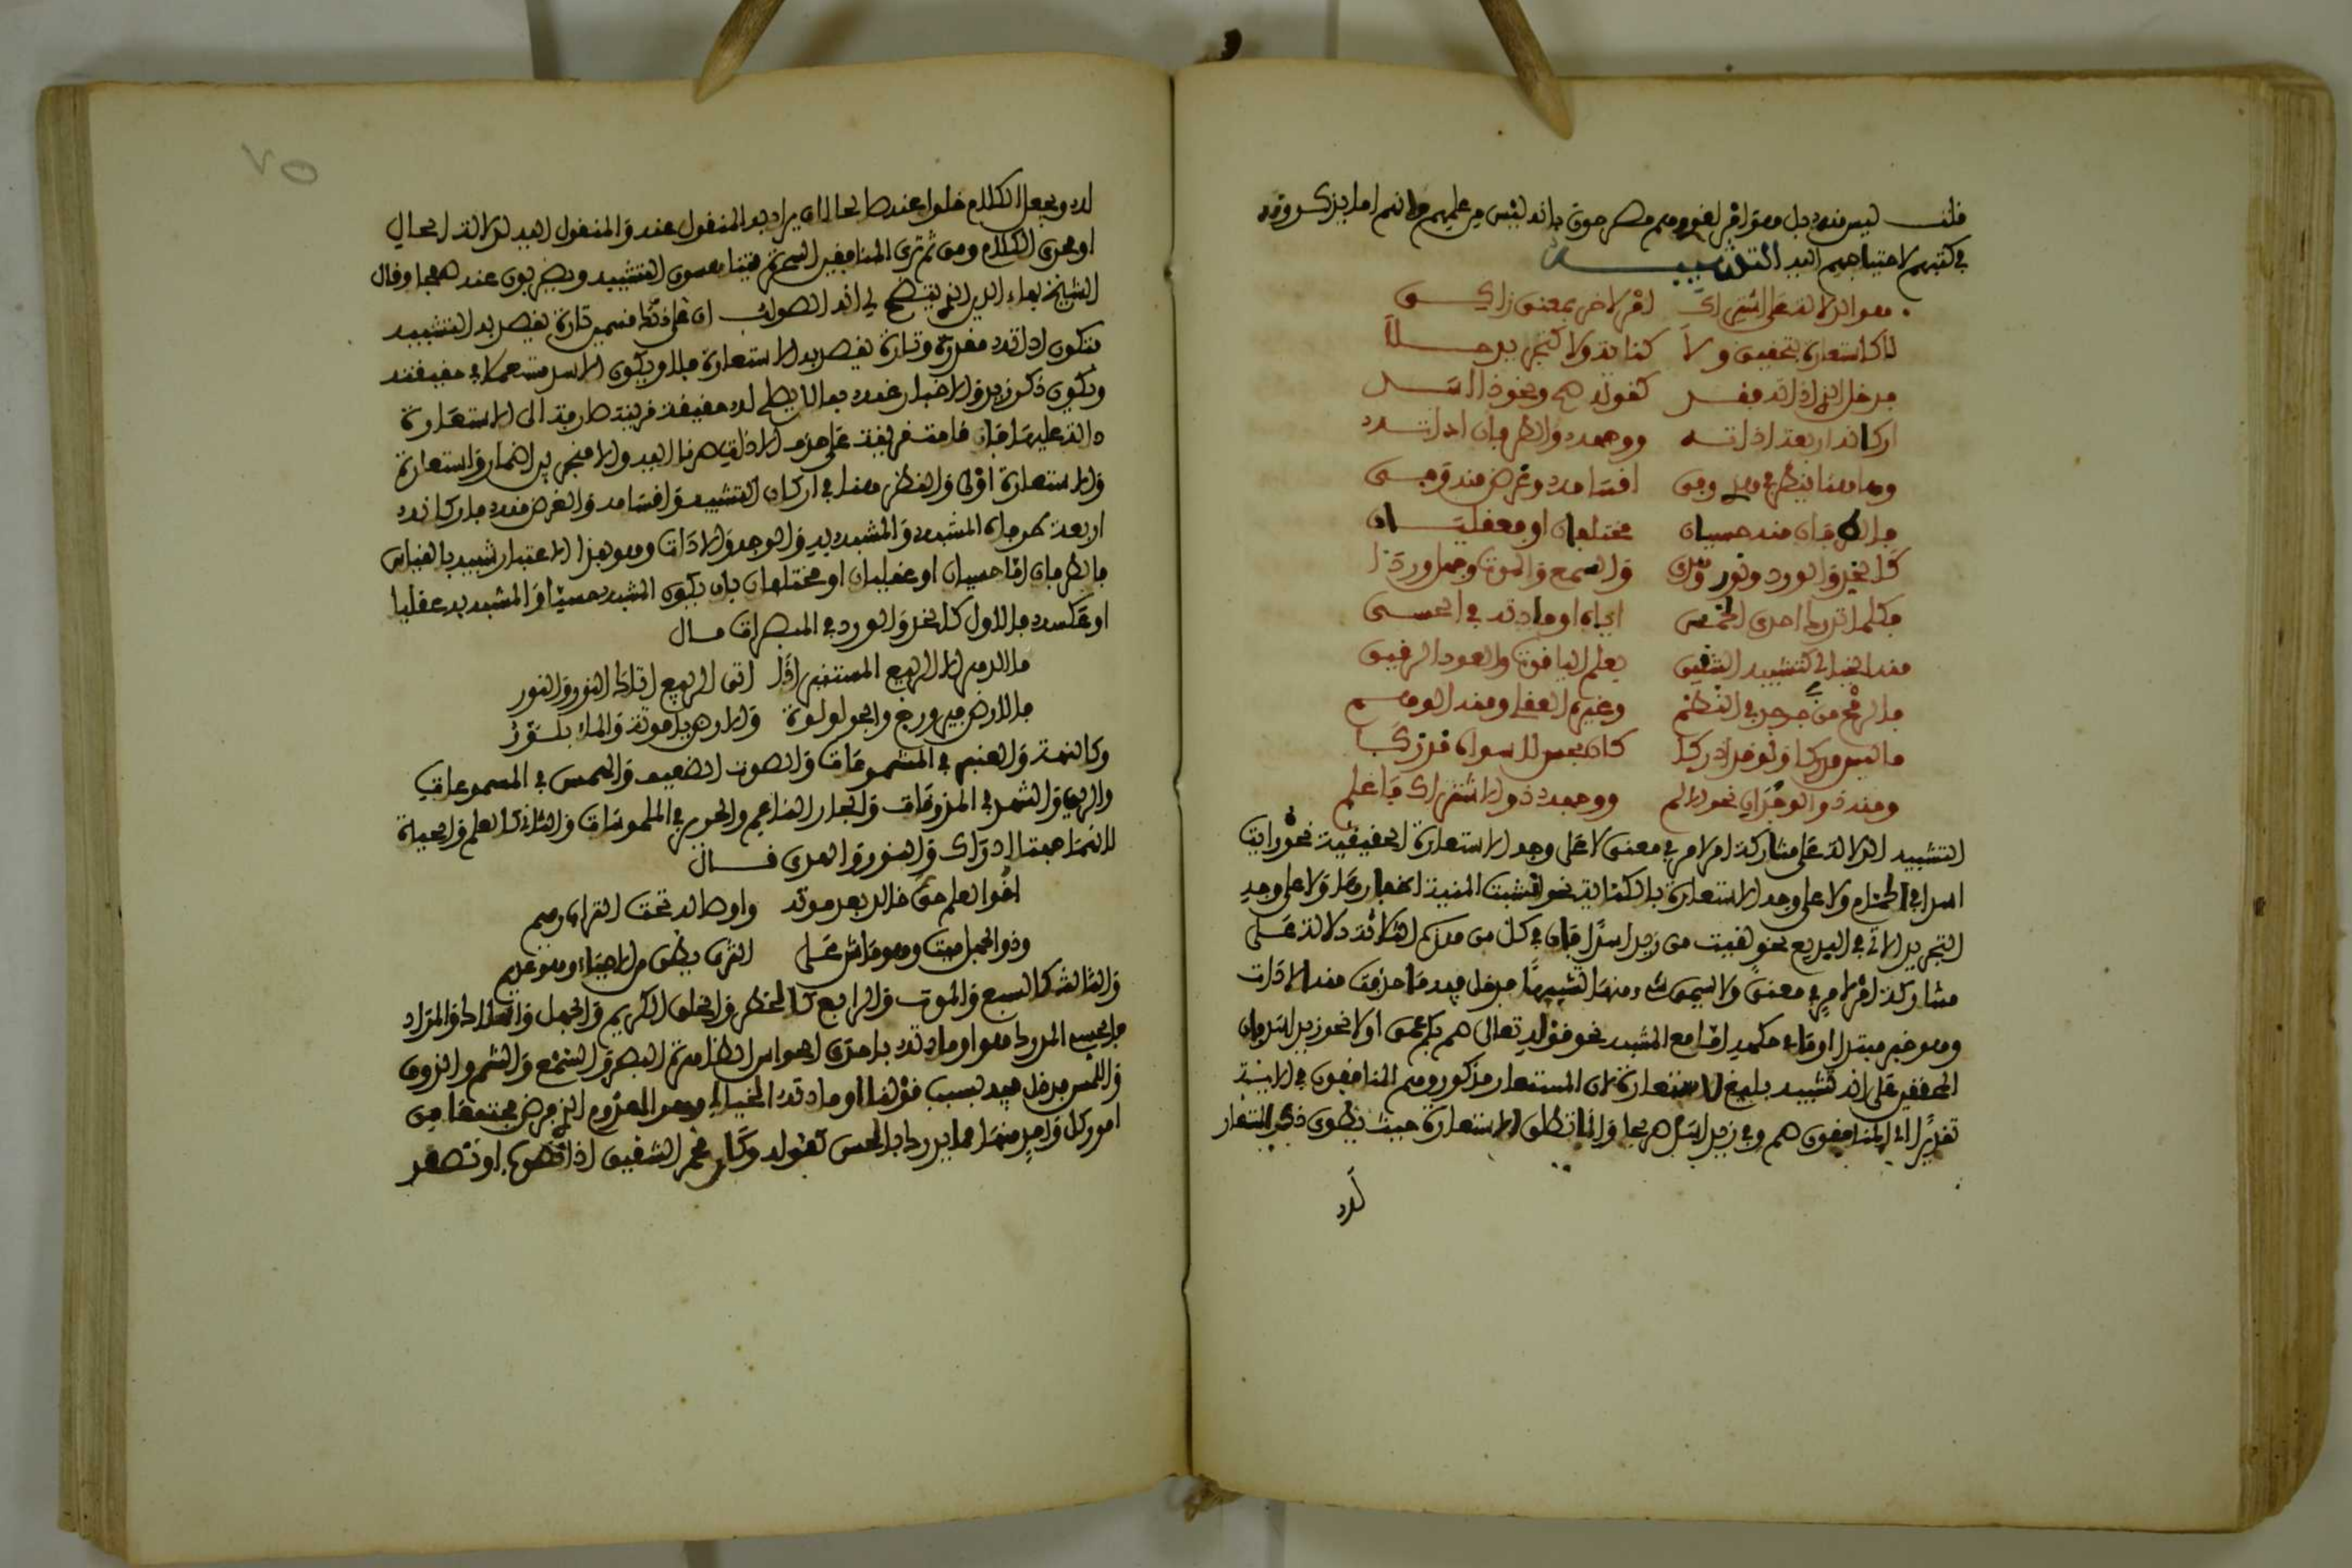 قلت ليس منه بل هو امر لغوى وهم مصرحون بانه ليس من علمهم وانهم انما يذكرونه
في كتبهم لاحتياجهم اليه التشبيه
هو الدلالة على اشتراك امر لاخر بمعنى زاكى
لا كاستعارة بتحقيق ولا كناية ولا كتجريد جلا
فدخل الذى اداته فقد كقوله صم ونحو ذا اسد
اركانه اربعة اداته ووجهه والطرفان اداته
وها هنا ينظر في هذى وفى اقسامه وغرض منه وفى
فالطرفان منه حسيان مختلفان او فعقليان
كالخد والورد ونور والسمع والموت وجهل وردا
فكلما تدرك احدى الخمس اياه او مادته في الحسى
منه الخيالى كتشبيه الشقيق بعلم الياقوت والعود الرقيق
وغيره العقلى ومنه الوهمى
ما ليس مدركا ولو قد ادركا كان بحس لا سواه مدركا
ومنه ذو الوجدان نحو الالم ووجهه ذو الاشتراك فاعلم
التشبيه الدلالة على مشاركة امر لامر في معنى لا على وجه الاستعارة الحقيقية نحو رايت
اسدا في الحمام ولا على وجه الاستعارة بالكناية نحو انشبت المنية اظفارها ولا على وجه
التجريد الاتى في البديع نحو لقيت من زيد اسدا فان في كل من هذه الثلاثة دلالة على
مشاركة امر لامر في معنى ولا يسمى شىء منها تشبيها فدخل فيه ما حذفت منه الادات
وهو خبر مبتدا او في حكمه اما مع المشبه نحو قوله تعالى صم بكم عمى اولا نحو زيد اسد فان
المحققين على انه تشبيه بليغ لا استعارة لان المستعار مذكور وهم المنافقون في الاية
تقديرا اى المنافقون صم وفي زيد اسد صريحا وانما تطلق الاستعارة حيث يطوى ذكر المستعار
له
٧٥
له ويجعل الكلام خلوا عنه صالحا لان يراد به المنقول عنه والمنقول اليه لولا دلالة الحال
او فحوى الكلام ومن ثم ترى المفلقين السحرة يتناسون التشبيه ويضربون عنه صفحا وقال
الشيخ بهاء الدين الذى يتضح لى انه الصواب ان في ذلك قسمين تارة يقصد به التشبيه
فتكون اداته مقدرة وتارة يقصد به الاستعارة فلا ويكون الاسد مستعملا في حقيقته
ويكون ذكر زيد والاخبار عنه بما لا يصلح له حقيقة قرينة صارفة الى الاستعارة
دالة عليها فان قامت قرينة على حذف الاداة صرنا اليه والا فنحن بين اضمار واستعارة
والاستعارة اولى والنظر هنا في اركان التشبيه واقسامه والغرض منه فاركانه
اربعة طرفان المشبه والمشبه به والوجه والادات وهو بهذا الاعتبار شبيه بالقياس
فالطرفان اما حسيان او عقليان او مختلفان بان يكون المشبه حسيا والمشبه به عقليا
او عكسه فالاول كالخد والورد في المبصرات قال
ما الدهر الا الربيع المستنير اذا اتى الربيع اتاك النور والنور
فالارض فيروزج والجو لولوة والروض ياقوتة والماء بلور
وكالنكهة والعنبر في المشمومات والصوت الضعيف والهمس في المسموعات
والريق والشهد في المذوقات والجلد الناعم والحرير في الملموسات والثانى كالعلم والحياة
لانهما جهتا ادراك والنور والهدى قال
اخو العلم حى خالد بعد موته واوصاله تحت التراب رميم
وذو الجهل ميت وهو ماش على الثرى يظن من الاحياء وهو عديم
والثالث كالسبع والموت والرابع كالعطر والخلق الكريم
فالحسى المدرك هو او مادته باحدى الحواس الظاهرة البصر والسمع والشم والذوق
واللمس فدخل فيه بسبب قولنا او مادته الخيالى وهو المعدوم الذى فرض مجتمعا من
امور كل واحد منها مما يدرك بالحس كقوله وكان محمر الشقيق اذا تصوب او تصعد